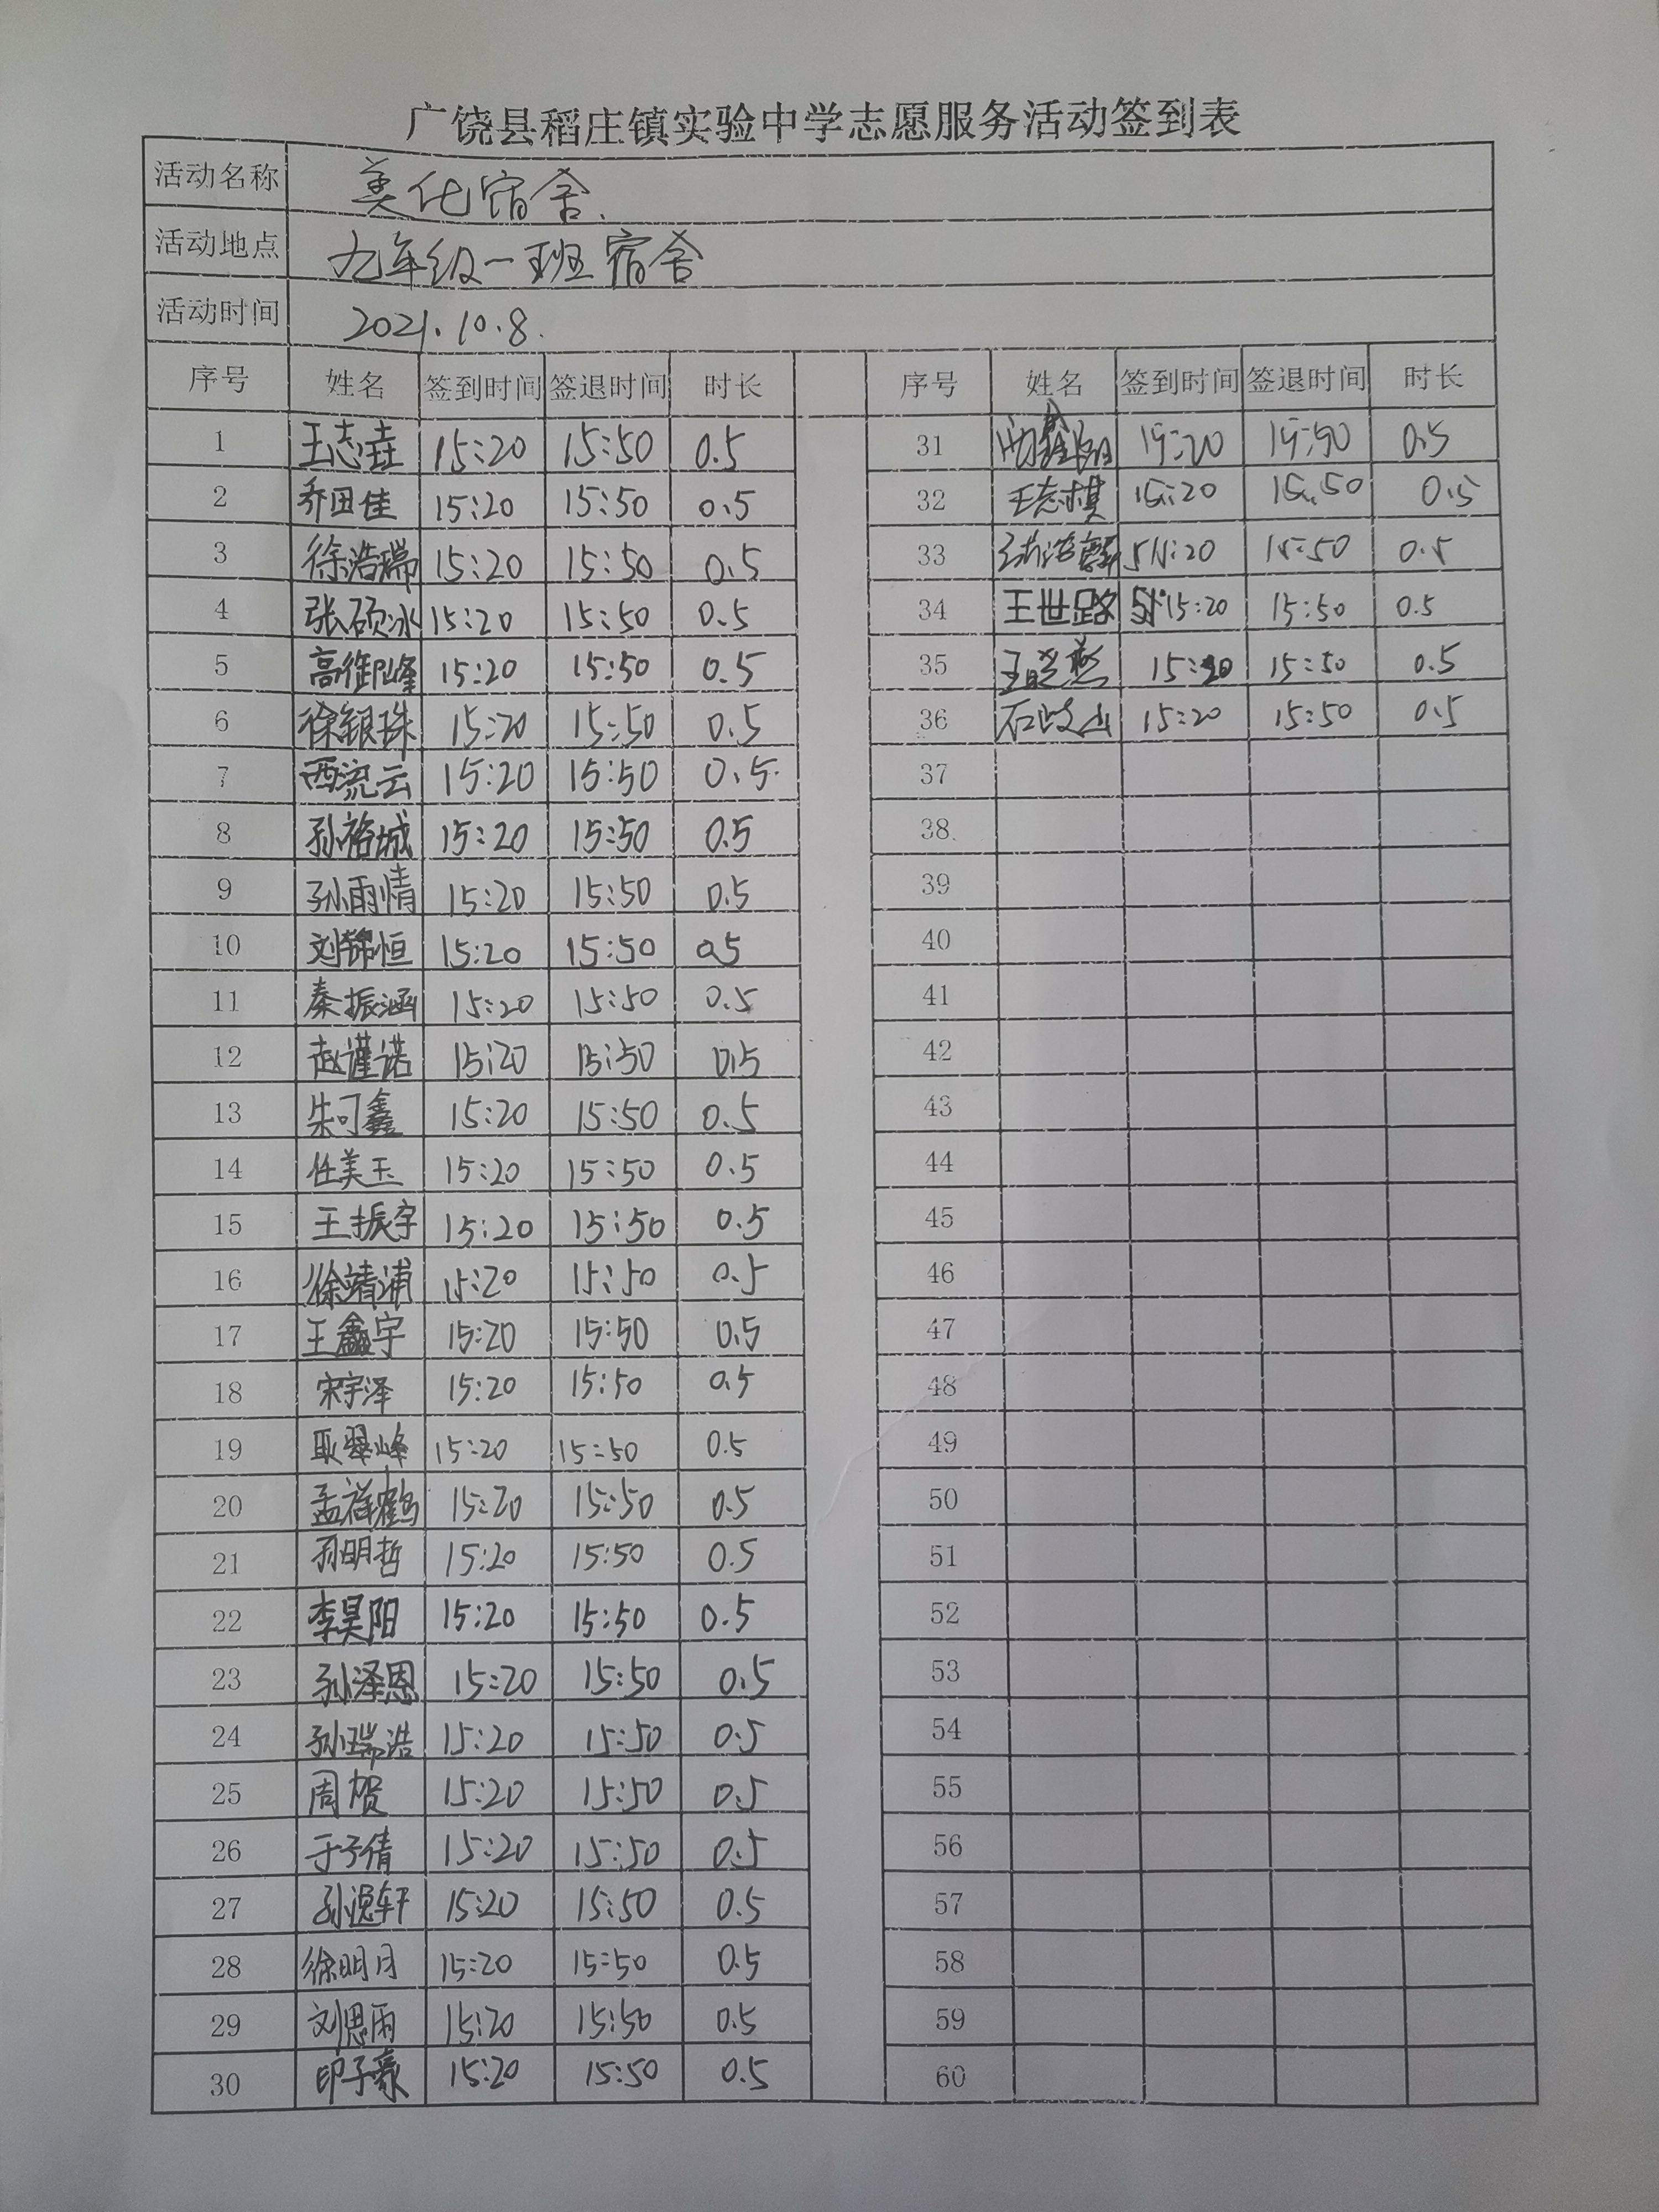 广饶县稻庄镇实验中学志愿服务活动签到表
活动名称 美化宿舍.
活动地点 九年级一班宿舍
活动时间 2021.10.8.
序号 姓名 签到时间 签退时间 时长 序号 姓名 签到时间 签退时间 时长
1 王志垚 15:20 15:50 0.5 31 15:20 15:50 0.5
2 乔田佳 15:20 15:50 0.5 32 王志棋 15:20 15:50 0.5
3 徐浩瑞 15:20 15:50 0.5 33 15:20 15:50 0.5
4 张硕冰 15:20 15:50 0.5 34 王世路 15:20 15:50 0.5
5 高御峰 15:20 15:50 0.5 35 王晓燕 15:20 15:50 0.5
6 徐银珠 15:20 15:50 0.5 36 石岐山 15:20 15:50 0.5
7 西流云 15:20 15:50 0.5 37
8 孙裕城 15:20 15:50 0.5 38
9 孙雨情 15:20 15:50 0.5 39
10 刘锦恒 15:20 15:50 0.5 40
11 秦振涵 15:20 15:50 0.5 41
12 赵谨诺 15:20 15:50 0.5 42
13 朱可鑫 15:20 15:50 0.5 43
14 任美玉 15:20 15:50 0.5 44
15 王振宇 15:20 15:50 0.5 45
16 徐靖浦 15:20 15:50 0.5 46
17 王鑫宇 15:20 15:50 0.5 47
18 宋宇泽 15:20 15:50 0.5 48
19 耿翠峰 15:20 15:50 0.5 49
20 孟祥鹤 15:20 15:50 0.5 50
21 孙明哲 15:20 15:50 0.5 51
22 李昊阳 15:20 15:50 0.5 52
23 孙泽恩 15:20 15:50 0.5 53
24 孙瑞浩 15:20 15:50 0.5 54
25 周贺 15:20 15:50 0.5 55
26 于子倩 15:20 15:50 0.5 56
27 孙逸轩 15:20 15:50 0.5 57
28 徐明月 15:20 15:50 0.5 58
29 刘思雨 15:20 15:50 0.5 59
30 印子豪 15:20 15:50 0.5 60